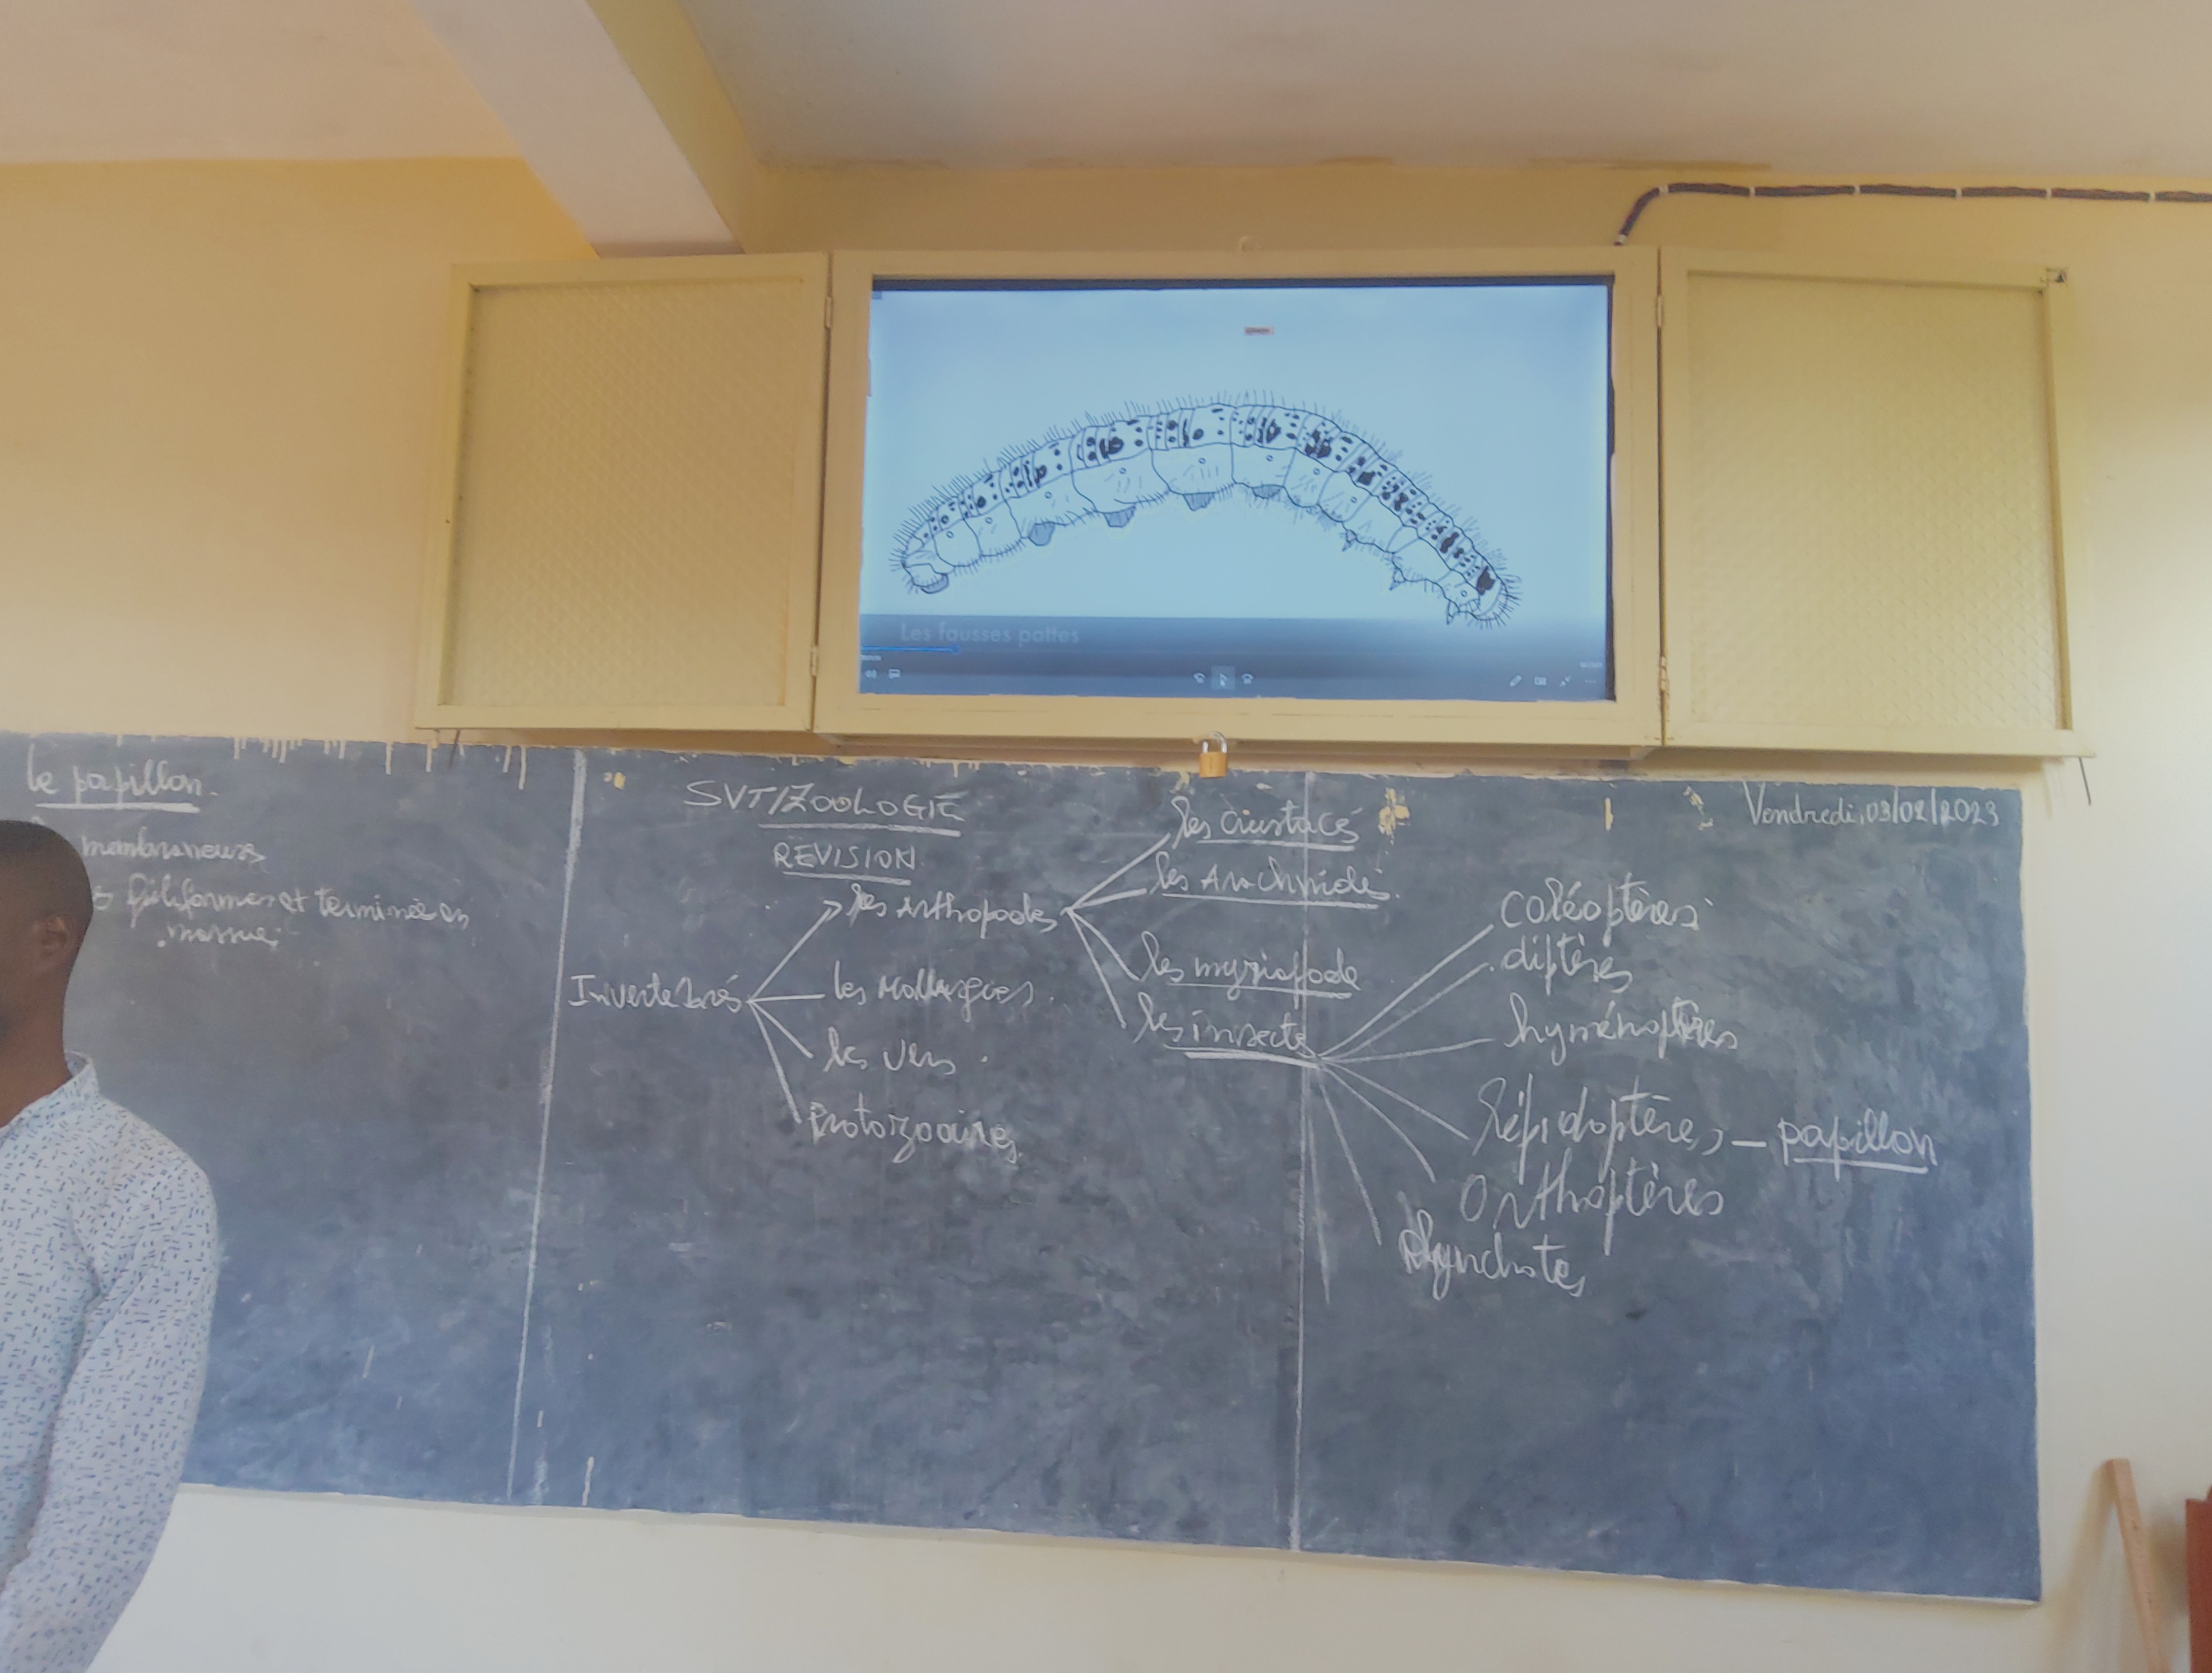 Les fausses pattes
le papillon.
membraneuses
filiformes et terminées en
massue
SVT/ZOOLOGIE
REVISION
Invertebrés
les Arthropodes
les Mollusques
les vers
Protozoaires
les Crustacés
les Arachnides
les myriapode
les insectes
Vendredi, 03/02/2023
coléoptères
diptères
hyménoptères
lépidoptères - papillon
Orthoptères
Rhynchotes